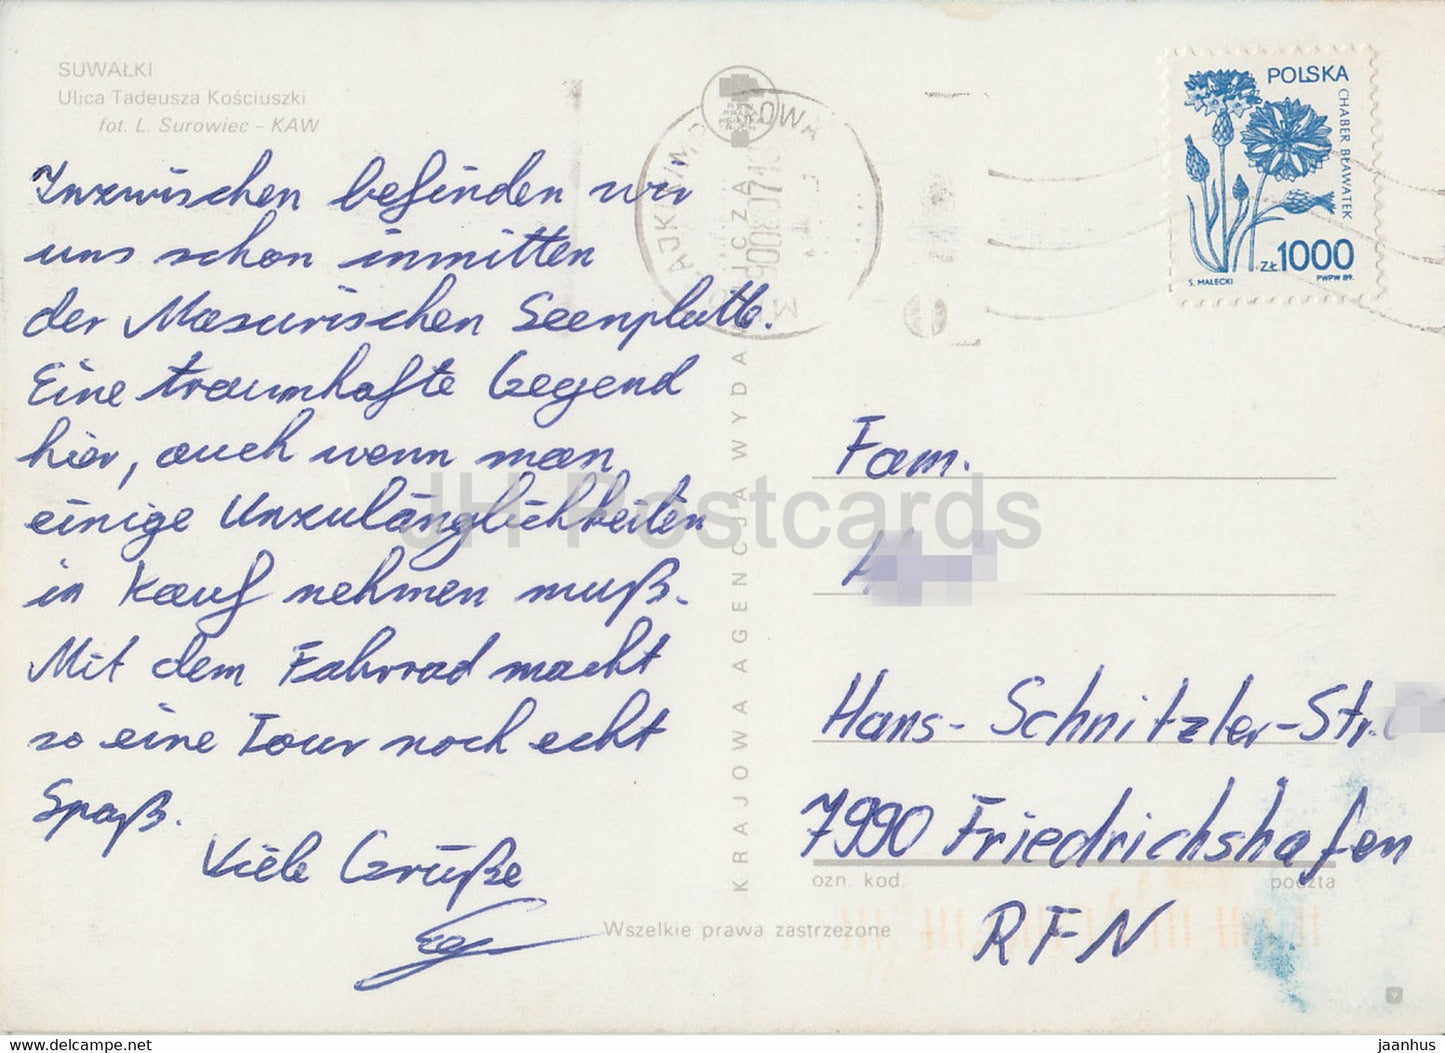 SUWAŁKI
Ulica Tadeusza Kościuszki
fot. L. Surowiec – KAW
Inzwischen befinden wir
uns schon inmitten
der Masurischen Seenplatte.
Eine traumhafte Gegend
hier, auch wenn man
einige Unzulänglichkeiten
in Kauf nehmen muß.
Mit dem Fahrrad macht
so eine Tour noch echt
Spaß.
Viele Grüße
KRAJOWA AGENCJA WYDAWNICZA
POLSKA
CHABER BŁAWATEK
ZŁ 1000
S. MAŁECKI
PWPW 89.
Fam.
Hans-Schnitzler-Str.
7990 Friedrichshafen
ozn. kod.
poczta
RFN
Wszelkie prawa zastrzeżone
JH Postcards
suwalki.com.ee
jaanhus